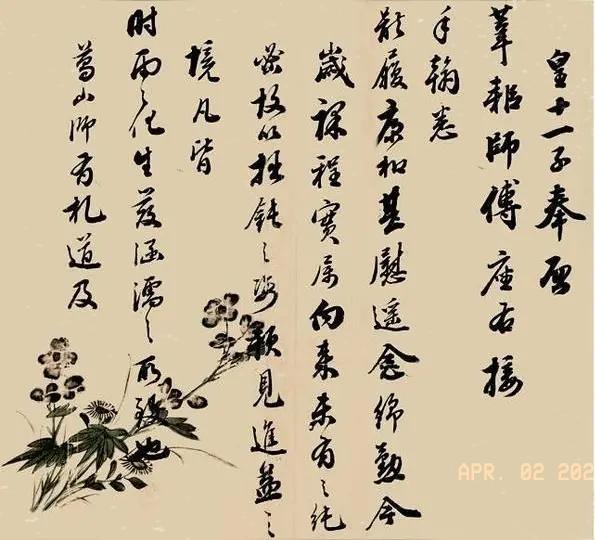 皇十一子奉啟
葦師傅座右接
手翰悉
履康和甚慰遥念绵懃今
歲課程實為向來未有之純
密故以拙鈍之姿頗見進益之
境凡皆
时雨之化生涵濡之所致也
葛山師有札道及
APR. 02 202